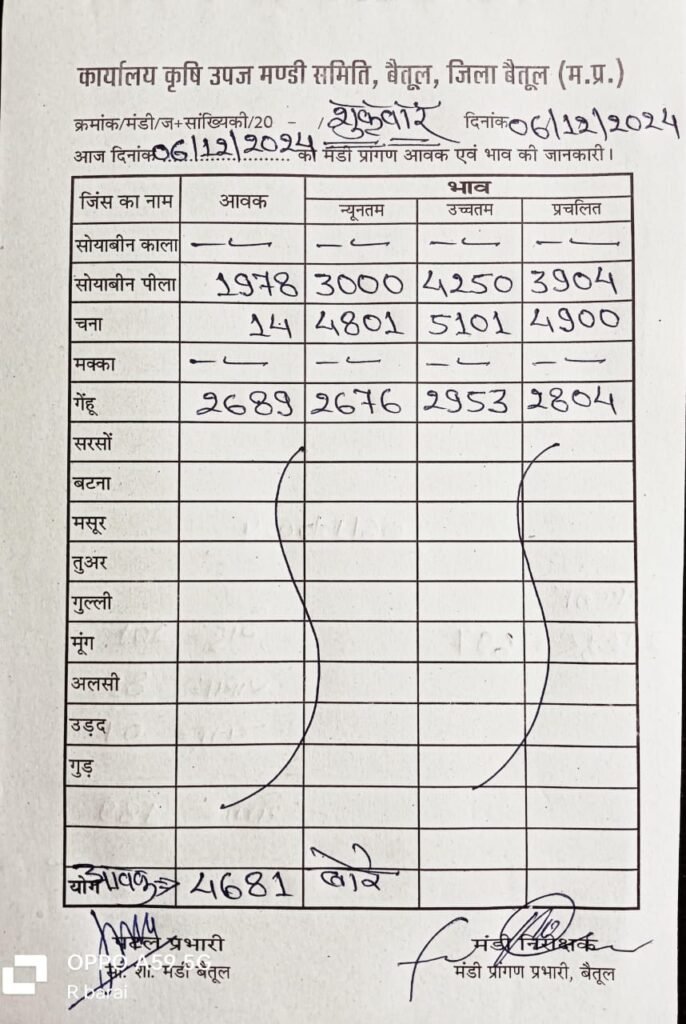 कार्यालय कृषि उपज मण्डी समिति, बैतूल, जिला बैतूल (म.प्र.)
क्रमांक/मंडी/ज+सांख्यिकी/20 - / शुक्रवार दिनांक 06/12/2024
आज दिनांक 06/12/2024 को मंडी प्रांगण आवक एवं भाव की जानकारी।
जिंस का नाम आवक भाव
न्यूनतम उच्चतम प्रचलित
सोयाबीन काला — — — —
सोयाबीन पीला 1978 3000 4250 3904
चना 14 4801 5101 4900
मक्का — — — —
गेंहू 2689 2676 2953 2804
सरसों
बटना
मसूर
तुअर
गुल्ली
मूंग
अलसी
उड़द
गुड़
योग आवक 4681 बोरे
प्रभारी मंडी निरीक्षक
मंडी बैतूल मंडी प्रांगण प्रभारी, बैतूल
OPPO A59 5G
R barai